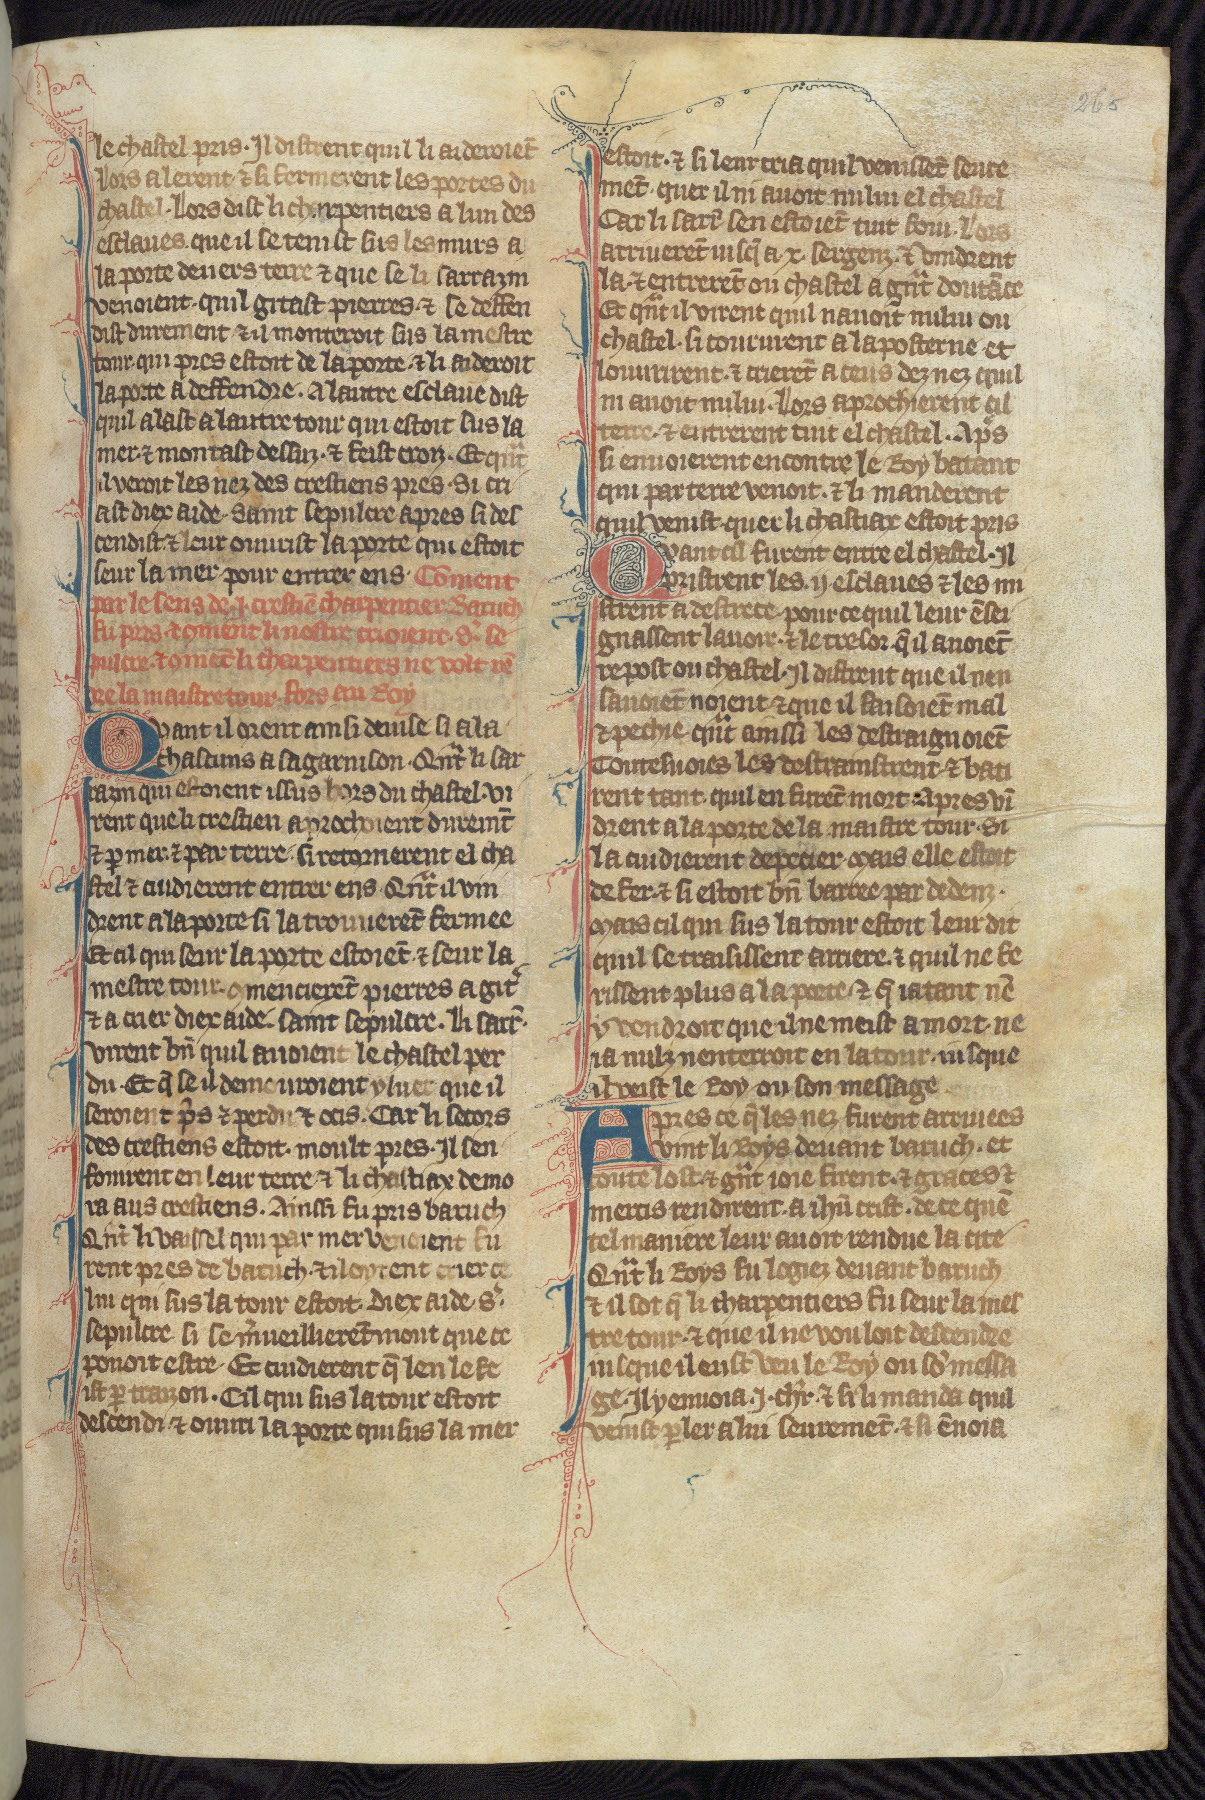 265
le chastel pris. Il distrent quil li aideroiẽt
Lors alerent ⁊ si fermerent les portes du
chastel. Lors dist li charpentiers a lun des
esclaues. que il se tenist sus les murs a
la porte deuers terre ⁊ que se li sarrazin
venoient. quil gitast pierres. ⁊ se deffen
dist durement ⁊ il monteroit sus la mestre
tour. qui pres estoit de la porte. ⁊ li aideroit
la porte a deffendre. A lautre esclaue dist
quil alast a lautre tour qui estoit sus la
mer. ⁊ montast dessuz. ⁊ feist croiz. Et quñt
il veroit les nez des crestiens pres. Si cri
ast diex aide. Saint sepulcre apres si des
cendist. ⁊ leur ouurist la porte qui estoit
seur la mer. pour entrer ens. Cõment
par le sens de .j. crestiẽ charpentier. Baruch
fu pris. ⁊ coment li nostre crioient. S. se
pulcre. ⁊ comẽt li charpentiers ne volt rẽ
dre la maistre tour. fors au Roy
Quant il orent ainsi deuise si ala
chascuns a sa garnison. Qñt li sar
razin qui estoient issus hors du chastel. vi
rent que li crestien aprochoient duremẽt
⁊ ꝑ mer. ⁊ par terre. si retornerent el cha
stel ⁊ cuidierent entrer ens. Qñt il vin
drent a la porte si la trouuerẽt fermee
Et cil qui seur la porte estoiẽt. ⁊ seur la
mestre tour. ꝯmencierẽt pierres a gitr
⁊ a crier diex aide. saint sepulcre. Li sarr̃.
virent bñ quil auoient le chastel per
du. Et q̃ se il demeuroient yluec que il
seroient pris ⁊ perdu ⁊ ocis. Car li secors
des crestiens estoit. moult pres. Il sen
fouirent en leur terre. ⁊ li chastiax demo
ra aus crestiens. Ainssi fu pris baruch
Qñt li vaissel qui par mer venoient fu
rent pres de baruch. ⁊ il oyrent crier ce
lui qui sus la tour estoit. Diex aide. S.
sepulcre. si se mueillierẽt mout que ce
pouoit estre. Et cuidierent q̃ len le fe
ist ꝑ traizon. Cil qui sus la tour estoit
descendi. ⁊ ouuri la porte qui sus la mer
estoit. ⁊ si leur cria quil venissẽt seure
mẽt. quer il ni auoit nului el chastel
Car li sarr̃ sen estoiẽt tuit foui. Lors
arriuerẽt iusq̃ a .x. sergenz. ⁊ vindrent
la. ⁊ entrerẽt ou chastel a gñt doutãce
Et qñt il virent quil nauoit nului ou
chastel. si coururent a la posterne. et
louurirent. ⁊ crierẽt a ceus dez nez quil
ni auoit nului. Lors aprochierent cil
terre. ⁊ entrerent tuit el chastel. Ap̃s
si enuoierent encontre le Roy batant
qui par terre venoit. ⁊ li manderent
quil venist. quer li chastiax estoit pris
Quant cil furent entre el chastel. Il
pristrent les .ij. esclaues ⁊ les mi
strent a destrece. pour ce quil leur ẽsei
gnassent lauoir. ⁊ le tresor q̃ il auoiẽt
repost ou chastel. Il distrent que il nen
sauoiẽt noient ⁊ que il faisoiẽt mal
⁊ pechie. qñt ainssi les destraignoiẽt
Toutesuoies les destrainstrent. ⁊ bati
rent tant. quil en furẽt mort. Apres vĩ
drent a la porte de la maistre tour. Si
la cuidierent depecier. Mais elle estoit
de fer. ⁊ si estoit bñ barree par dedenz.
Mais cil qui sus la tour estoit leur dit
quil se traisissent arriere. ⁊ quil ne fe
rissent plus a la porte. ⁊ q̃ ia tant nẽ
y vendroit que il ne meist a mort. ne
ia nulz nenterroit en la tour. iusque
il veist le Roy ou son message
Apres ce q̃ les nez furent arriuees
vint li Roys deuant baruch. et
toute lost. ⁊ gñt ioie firent. ⁊ graces ⁊
mercis rendirent. a ihũ crist. de ce quẽ
tel maniere leur auoit rendue la cite
Qñt li Roys fu logiez deuant baruch
⁊ il sot q̃ li charpentiers fu seur la mes
tre tour. ⁊ que il ne vouloit descendre
iusque il eust veu le Roy ou sõ messa
ge. Il y enuoia .j. chr̃. ⁊ si li manda quil
venist ꝑler a lui seuremẽt. ⁊ si ẽuoia